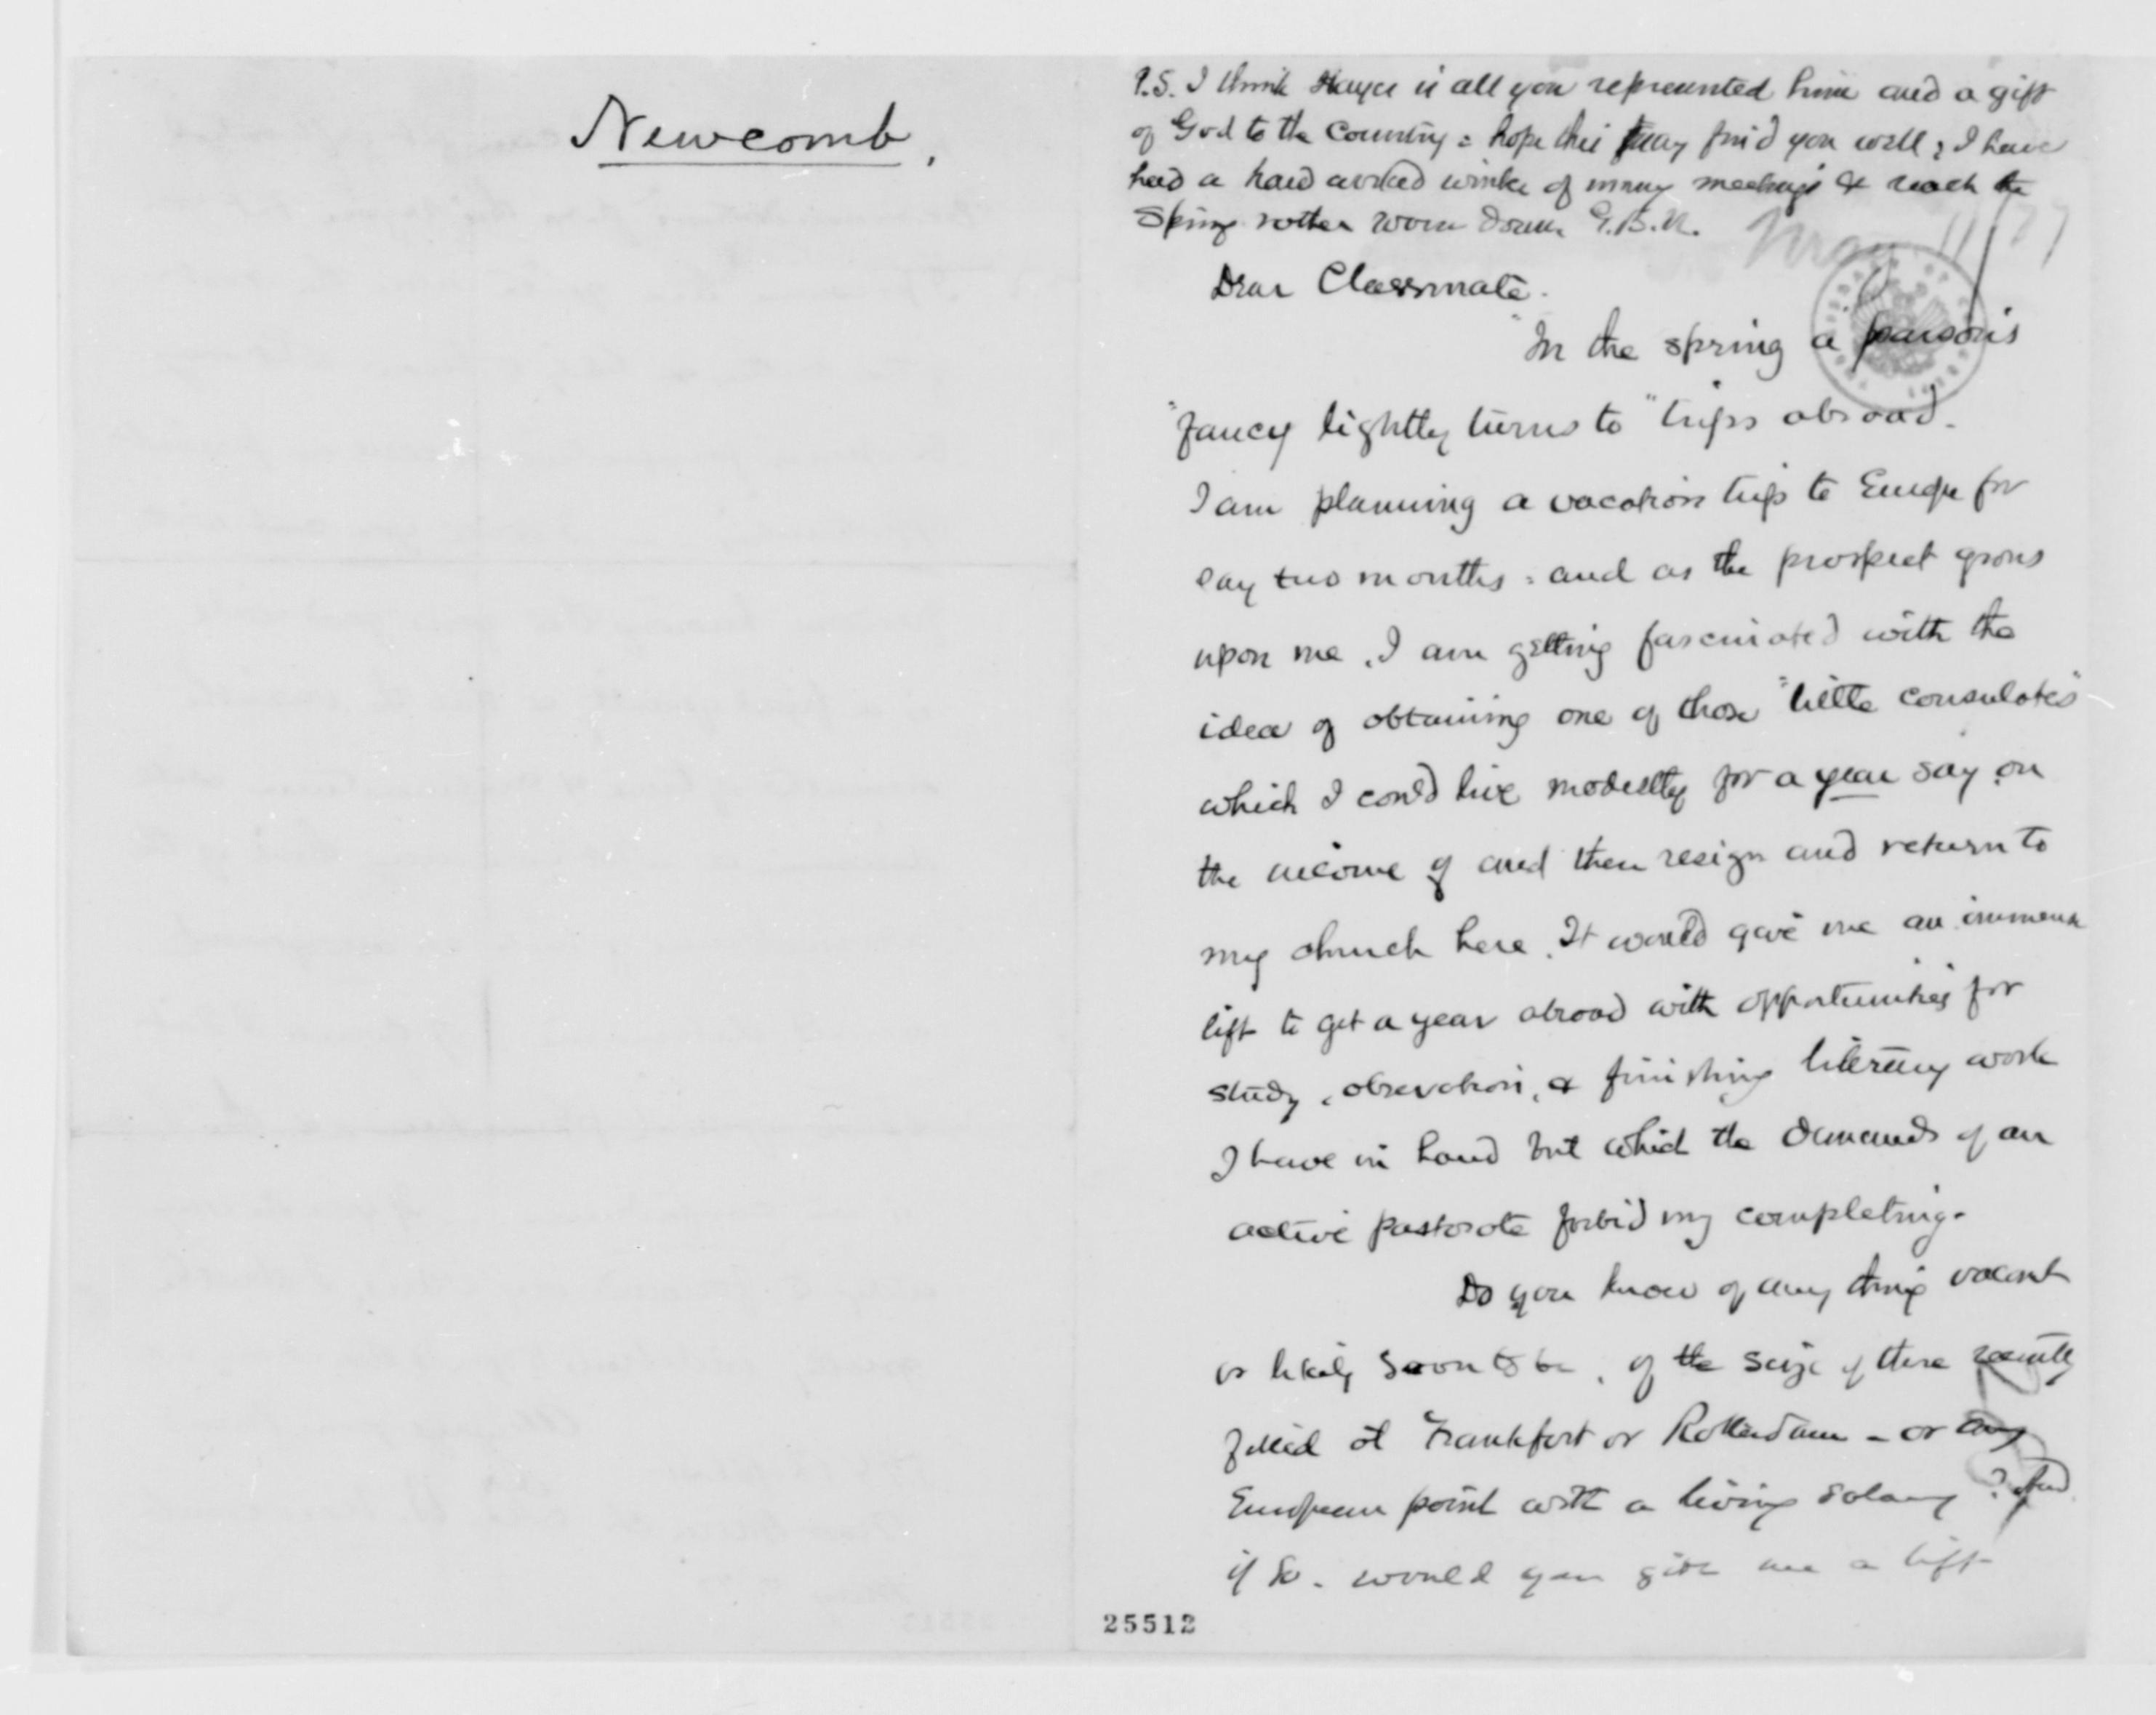 Newcomb.
P.S. I think Hayes is all you represented him and a gift
of God to the Country = hope this may find you well; I have
had a hard worked winter of many meetings & reach the
Spring rather worn down G.B.N.
May 11/77
Dear Classmate.
"In the spring a parson's
"fancy lightly turns to" trips abroad.
I am planning a vacation trip to Europe for
say two months = and as the prospect grows
upon me, I am getting fascinated with the
idea of obtaining one of those "little consulates"
which I could live modestly for a year say on
the income of and then resign and return to
my church here. It would give me an immense
lift to get a year abroad with opportunities for
study, observation, & finishing literary work
I have in hand but which the demands of an
active pastorate forbid my completing.
Do you know of any thing vacant
or likely soon to be, of the size of those recently
filled at Frankfort or Rotterdam - or any
European point with a living salary? And
if so. would you give me a lift
25512